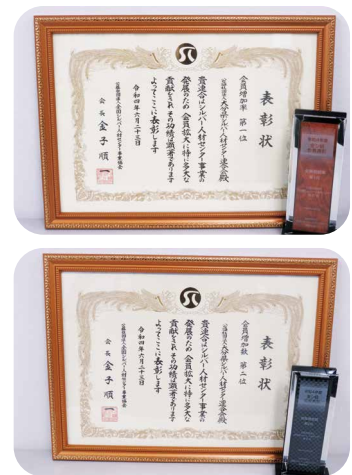 表彰状
会員増加率 第一位
公益社団法人大分県シルバー人材センター連合会殿
貴連合はシルバー人材センター事業の
発展のため会員拡大に特に多大な
貢献をされその功績は顕著であります
よってここに表彰します
令和四年六月二十三日
公益社団法人全国シルバー人材センター事業協会
会長 金子順一
表彰状
会員増加数 第二位
公益社団法人大分県シルバー人材センター連合会殿
貴連合はシルバー人材センター事業の
発展のため会員拡大に特に多大な
貢献をされその功績は顕著であります
よってここに表彰します
令和四年六月二十三日
公益社団法人全国シルバー人材センター事業協会
会長 金子順一